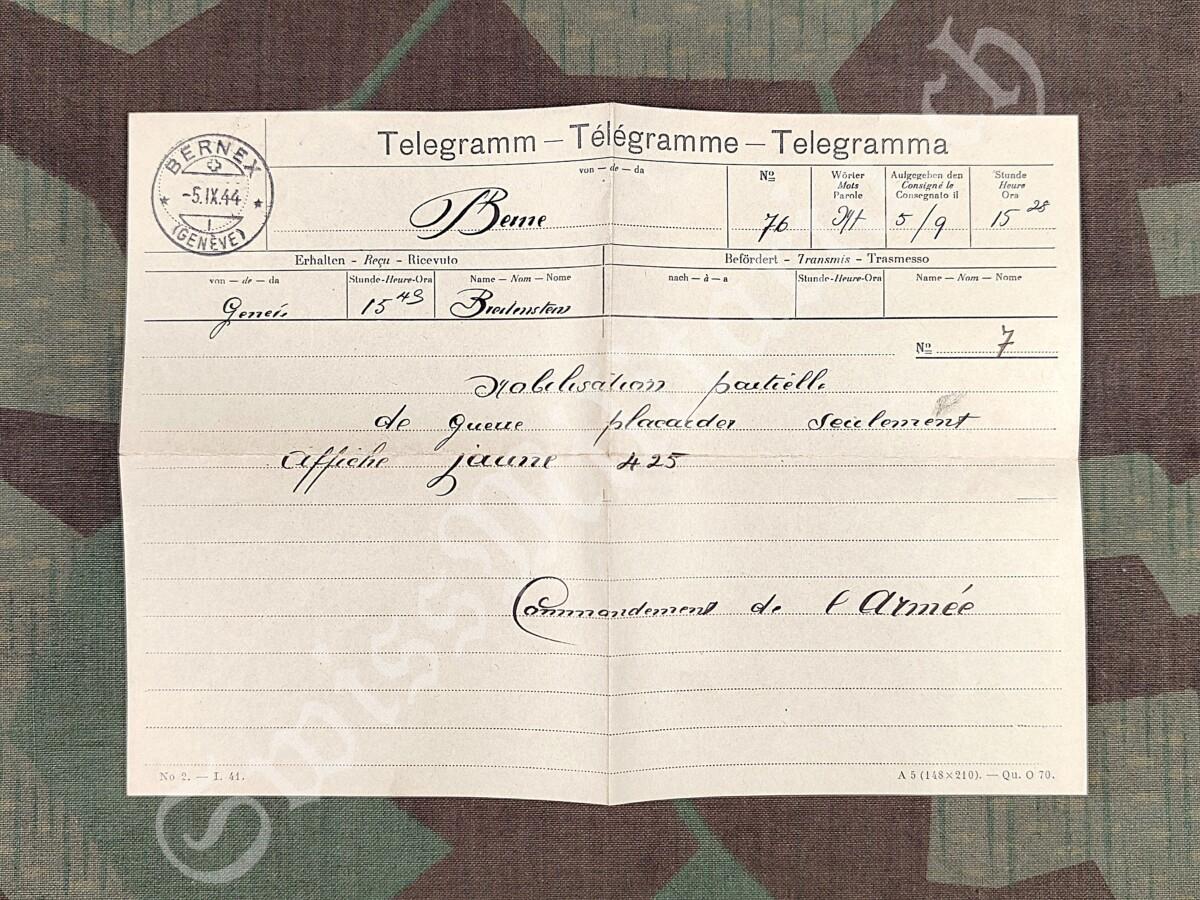 Telegramm – Télégramme – Telegramma
BERNEX
-5.IX.44
1
(GENÈVE)
von — de — da
Berne
No
76
Wörter
Mots
Parole
Aufgegeben den
Consigné le
Consegnato il
5/9
Stunde
Heure
Ora
15 28
Erhalten - Reçu - Ricevuto
Befördert - Transmis - Trasmesso
von — de — da
Stunde-Heure-Ora
15 43
Name — Nom — Nome
Breitenstein
nach — à — a
Stunde-Heure-Ora
Name — Nom — Nome
No 7
Mobilisation partielle
de guerre placarder seulement
affiche jaune 425
Commandement de l'Armée
No 2. — I. 41.
A 5 (148×210). — Qu. O 70.